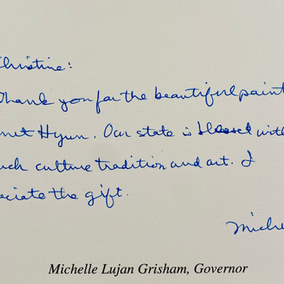 Christine:
Thank you for the beautiful paint
Hyun. Our state is blessed with
such culture tradition and art. I
eciate the gift.
Miche
Michelle Lujan Grisham, Governor